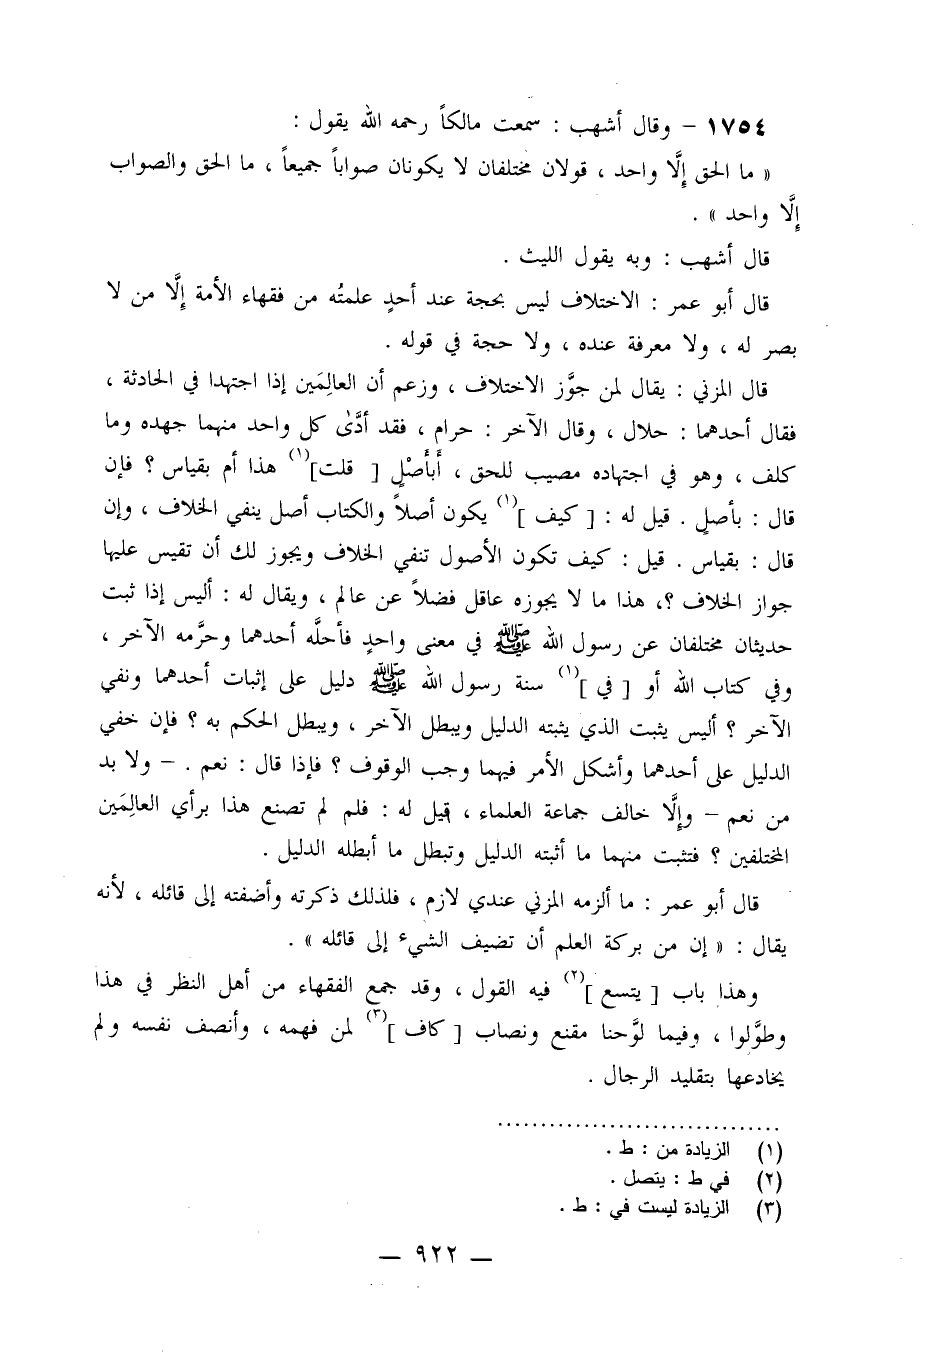 ١٧٥٤ – وقال أشهب : سمعت مالكاً رحمه الله يقول :
« ما الحق إلَّا واحد ، قولان مختلفان لا يكونان صواباً جميعاً ، ما الحق والصواب
إلَّا واحد » .
قال أشهب : وبه يقول الليث .
قال أبو عمر : الاختلاف ليس بحجة عند أحدٍ علمتُه من فقهاء الأمة إلَّا من لا
بصر له ، ولا معرفة عنده ، ولا حجة في قوله .
قال المزني : يقال لمن جوَّز الاختلاف ، وزعم أن العالِمَين إذا اجتهدا في الحادثة ،
فقال أحدهما : حلال ، وقال الآخر : حرام ، فقد أدَّىٰ كل واحد منهما جهده وما
كلف ، وهو في اجتهاده مصيب للحق ، أَبأَصْلٍ [ قلت](١) هذا أم بقياس ؟ فإن
قال : بأصلٍ . قيل له : [ كيف ](١) يكون أصلاً والكتاب أصل ينفي الخلاف ، وإن
قال : بقياس . قيل : كيف تكون الأصول تنفي الخلاف ويجوز لك أن تقيس عليها
جواز الخلاف ؟، هذا ما لا يجوزه عاقل فضلاً عن عالم ، ويقال له : أليس إذا ثبت
حديثان مختلفان عن رسول الله ﷺ في معنى واحدٍ فأحلَّه أحدهما وحرَّمه الآخر ،
وفي كتاب الله أو [ في ](١) سنة رسول الله ﷺ دليل على إثبات أحدهما ونفي
الآخر ؟ أليس يثبت الذي يثبته الدليل ويبطل الآخر ، ويبطل الحكم به ؟ فإن خفي
الدليل على أحدهما وأشكل الأمر فيهما وجب الوقوف ؟ فإذا قال : نعم . – ولا بد
من نعم – وإلَّا خالف جماعة العلماء ، قيل له : فلم لم تصنع هذا برأي العالِمَين
المختلفين ؟ فتثبت منهما ما أثبته الدليل وتبطل ما أبطله الدليل .
قال أبو عمر : ما ألزمه المزني عندي لازم ، فلذلك ذكرته وأضفته إلى قائله ، لأنه
يقال : « إن من بركة العلم أن تضيف الشيء إلى قائله » .
وهذا باب [ يتسع ](٢) فيه القول ، وقد جمع الفقهاء من أهل النظر في هذا
وطوَّلوا ، وفيما لوَّحنا مقنع ونصاب [ كاف ](٣) لمن فهمه ، وأنصف نفسه ولم
يخادعها بتقليد الرجال .
(١) الزيادة من : ط .
(٢) في ط : يتصل .
(٣) الزيادة ليست في : ط .
— ٩٢٢ —